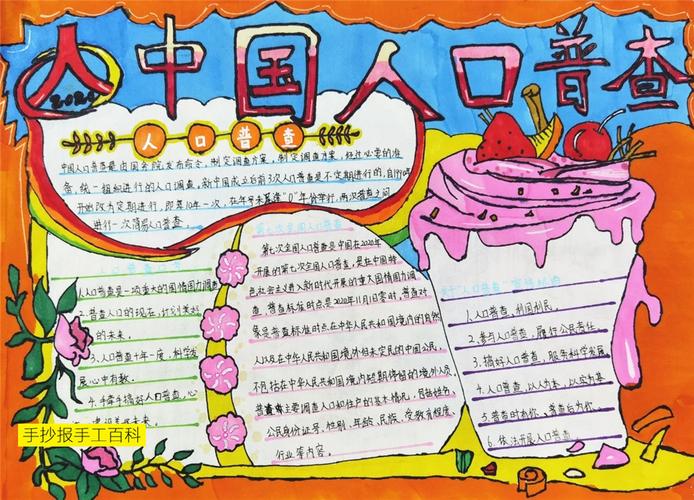 中国人口普查
2020
人口普查
中国人口普查是由国务院发布命令,制定调查方案,制定调查方案,经过必要的准
备,统一组织进行的人口调查,新中国成立后前3次人口普查是不定期进行的,自1990
开始改为定期进行,即每10年一次,在年号末尾逢“0”年份举行,两次普查之间
进行一次简易人口普查。
人口普查是一项重大的国情国力调查
2.普查人口的现在,计划美好
的未来。
3、人口普查十年一度,科学发
展心中有数。
4.手牵手搞好人口普查,心
未来。
第七次全国人口普查
第七次全国人口普查是中国在2020年
开展的第七次全国人口普查,是在中国特
色社会主义进入新时代开展的重大国情国力调
查,普查标准时点是2020年11月1日零时,普查对
象是普查标准时点在中华人民共和国境内的自然
人以及在中华人民共和国境外但未定居的中国公民,
不包括在中华人民共和国境内短期停留的境外人员。
普查主要调查人口和住户的基本情况,包括姓名
公民身份证号、性别、年龄、民族、受教育程度、
行业等内容。
“人口普查”宣传
1.人口普查,利国利民。
2.参与人口普查,履行公民责任
3.搞好人口普查,服务科学发展
4.人口普查,以人为本,以实为基
5.普查时为你,普查后为你。
6.依法开展人口普查
手抄报手工百科